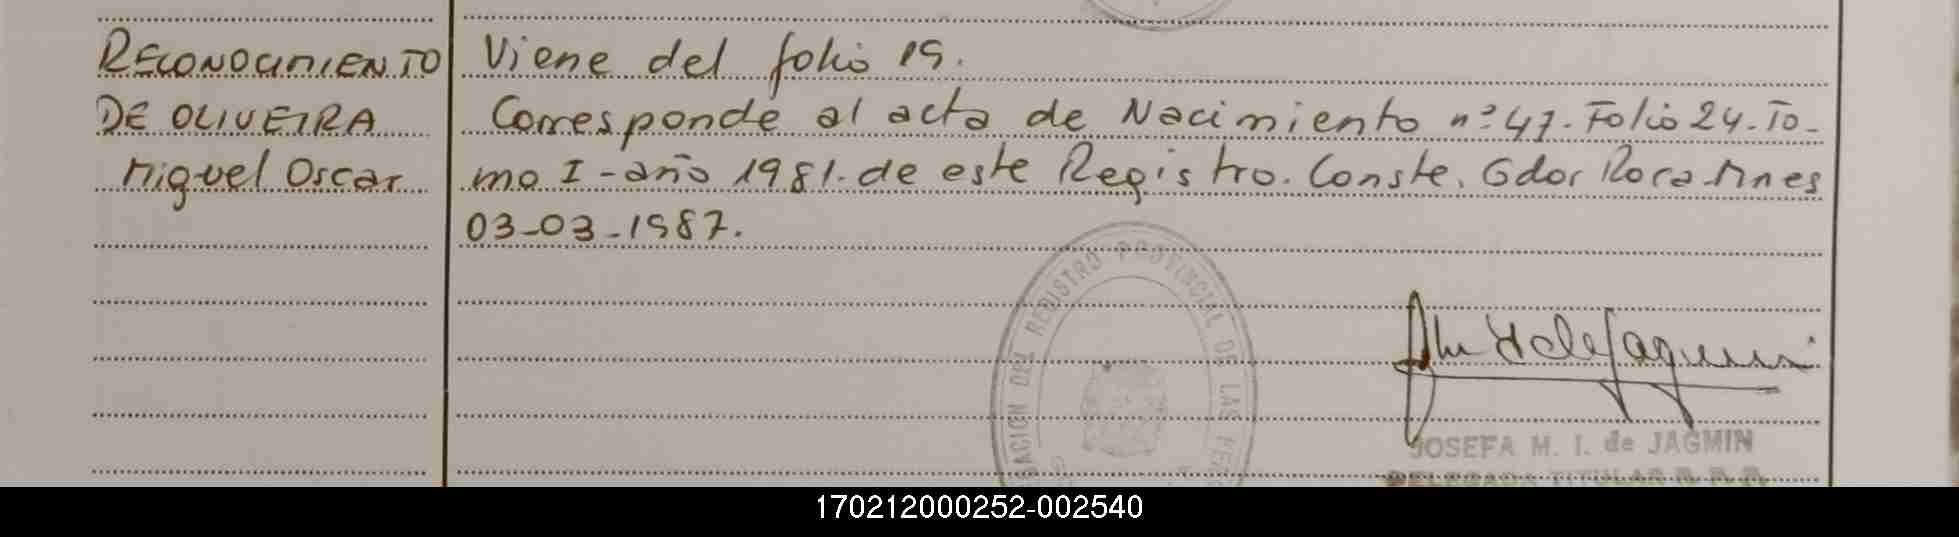 RECONOCIMIENTO
DE OLIVEIRA
Miguel Oscar
Viene del folio 19.
Corresponde al acta de Nacimiento nº 47. Folio 24. To-
mo I - año 1981. de este Registro. Conste. Gdor Roca. Mnes
03-03-1987.
DEL REGISTRO PROVINCIAL DE LAS
JOSEFA M. I. de JAGMIN
DELEGADA TITULAR
170212000252-002540